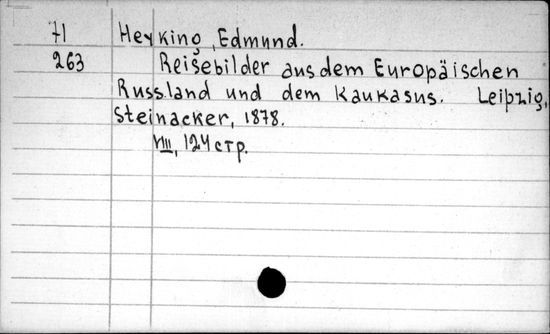 71 Heyking, Edmund.
263 Reisebilder aus dem Europäischen
Russland und dem Kaukasus. Leipzig,
Steinacker, 1878.
VIII, 124 стр.